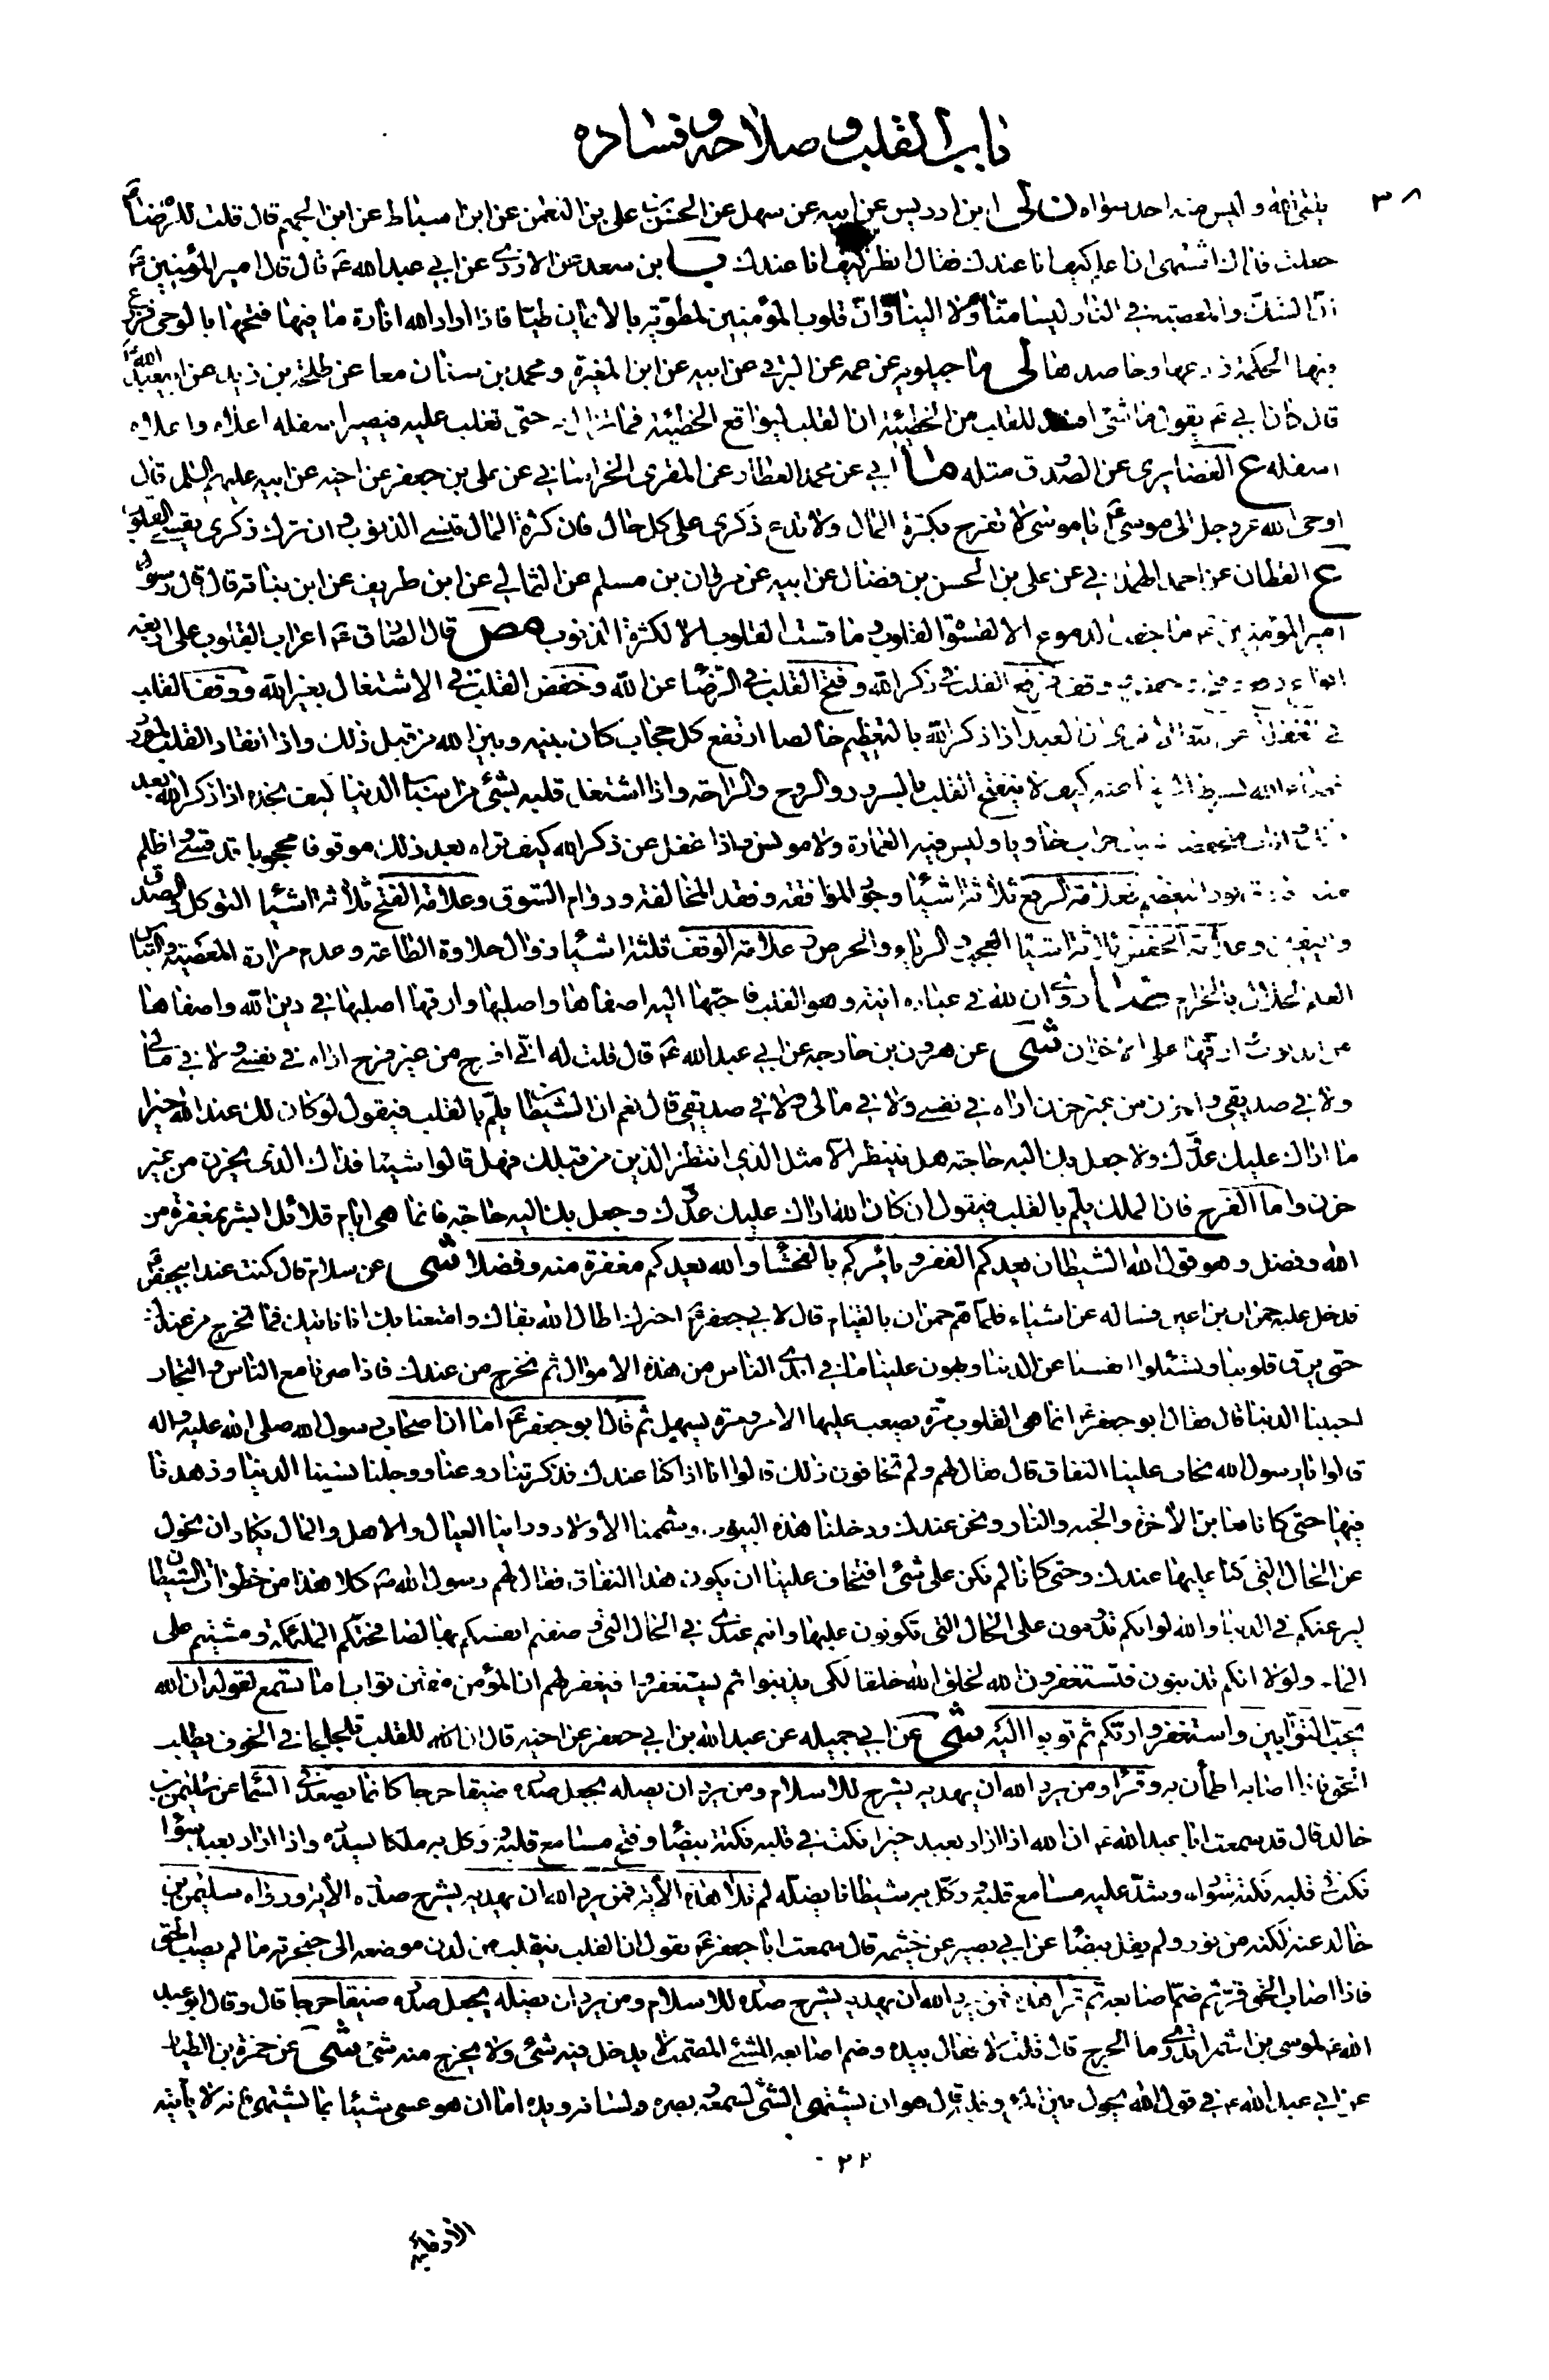 باب القلب وصلاحه وفساده
٣٨
ينتفي الله وليس منه احد سواه لى ابن ادريس عن ابيه عن سهل عن الحسن بن علي بن النعمن عن ابن اسباط عن ابن الجهم قال قلت للرضا ع
جعلت فداك اشتهى ان اعلم كيف انا عندك فقال انظر كيف انا عندك ب ابن سعد عن الازدي عن ابي عبد الله ع قال قال امير المؤمنين ع
ان الشك والمعصية في النار ليسا منا ولا الينا وان قلوب المؤمنين لمطوية بالايمان طيا فاذا اراد الله انارة ما فيها فتحها بالوحى فزرع
فيها الحكمة زارعها وحاصدها لى ماجيلويه عن عمه عن البرقي عن ابيه عن ابن المغيرة ومحمد بن سنان معا عن طلحة بن زيد عن ابي عبد الله ع
قال كان ابي ع يقول ما شئ افسد للقلب من الخطيئة ان القلب ليواقع الخطيئة فما تزال به حتى تغلب عليه فيصير اسفله اعلاه واعلاه
اسفله ع الغضايرى عن الصدوق مثله ابي عن محمد العطار عن المقرى الخراساني عن علي بن جعفر عن اخيه عن ابيه عليهم السلم قال
اوحى الله عز وجل الى موسى ع يا موسى لا تفرح بكثرة المال ولا تدع ذكرى على كل حال فان كثرة المال تنسي الذنوب وان ترك ذكرى يقسي القلوب
ع القطان عن احمد الهمداني عن علي بن الحسن بن فضال عن ابيه عن مروان بن مسلم عن الثمالي عن ابن طريف عن ابن نباتة قال قال
امير المؤمنين ع ما جفت الدموع الا لقسوة القلوب وما قست القلوب الا لكثرة الذنوب مص قال الصادق ع اعراب القلوب على اربعة
انواع رفع وفتح وخفض ووقف فرفع القلب في ذكر الله وفتح القلب في الرضا عن الله وخفض القلب في الاشتغال بغير الله ووقف القلب
في الغفلة عن الله الا ترى ان العبد اذا ذكر الله بالتعظيم خالصا ارتفع كل حجاب كان بينه وبين الله من قبل ذلك واذا انقاد القلب لمورد
قضاء الله بشرط الرضا عنه كيف لا ينفتح القلب بالسرور والروح والراحة واذا اشتغل قلبه بشئ من اسباب الدنيا كيف تجده اذا ذكر الله بعد
خرابا خاويا وليس فيه العمارة ولا مونس واذا غفل عن ذكر الله كيف تراه بعد ذلك موقوفا محجوبا قد قسى واظلم
منذ فارق نور التعظيم فعلامة الرفع ثلاثة اشيا وجود الموافقة وفقد المخالفة ودوام الشوق وعلامة الفتح ثلاثة اشيا التوكل والصدق
واليقين وعلامة الخفض ثلاثة اشيا العجب والرياء والحرص وعلامة الوقف ثلثة اشيا زوال حلاوة الطاعة وعدم مرارة المعصية والتباس
العلم الحلال بالحرام ضا روى ان لله في عباده انية وهو القلب فاحبها اليه اصفاها واصلبها وارقها اصلبها في دين الله واصفاها
من الذنوب وارقها على الاخوان شى عن هرون بن خارجه عن ابي عبد الله ع قال قلت له اني افرح من غير فرح اراه في نفسي ولا في مالي
ولا في صديقي واحزن من غير حزن اراه في نفسي ولا في مالى ولا في صديقي قال نعم ان الشيطا يلم بالقلب فيقول لو كان لك عند الله خيرا
ما ادال عليك عدوك ولا جعل بك اليه حاجة هل ننتظر الا مثل الذي انتظر الذين من قبلك فهل قالوا شيئا فذاك الذى يحزن من غير
حزن واما الفرح فان الملك يلم بالقلب فيقول ان كان الله ادال عليك عدوك وجعل بك اليه حاجة فانما هي ايام قلائل ابشر بمغفرة من
الله وفضل وهو قول الله الشيطان يعدكم الفقر ويامركم بالفحشا والله يعدكم مغفرة منه وفضلا شى عن سلام قال كنت عند ابيجعفر ع
فدخل عليه حمران بن اعين فساله عن اشياء فلما هم حمران بالقيام قال لابي جعفر ع اخبرك اطال الله بقاك وامتعنا بك انا ناتيك فما نخرج من عندك
حتى يرق قلوبنا وتسلوا انفسنا عن الدنيا ويهون علينا ما في ايدى الناس من هذه الاموال ثم نخرج من عندك فاذا صرنا مع الناس والتجار
احببنا الدنيا قال فقال ابو جعفر ع انما هي القلوب مرة يصعب عليها الامر ومرة يسهل ثم قال ابو جعفر ع اما ان اصحاب رسول الله صلى الله عليه واله
قالوا يا رسول الله نخاف علينا النفاق قال فقال لهم ولم تخافون ذلك قالوا انا اذا كنا عندك فذكرتنا روعنا ووجلنا نسينا الدنيا وزهدنا
فيها حتى كانا نعاين الاخرة والجنه والنار ونحن عندك ودخلنا هذه البيوت وشممنا الاولاد وراينا العيال والاهل والمال يكاد ان نحول
عن الحال التى كنا عليها عندك وحتى كانا لم نكن على شئ افتخاف علينا ان يكون هذا النفاق فقال لهم رسول الله ص كلا هذا من خطوات الشيطان
ليرغبنكم في الدنيا والله لو انكم تدومون على الحال التى تكونون عليها وانتم عندي في الحال التي وصفتم انفسكم بها لصافحتكم الملئكة ومشيتم على
الماء ولولا انكم تذنبون فتستغفرون الله لخلق الله خلقا لكى يذنبوا ثم يستغفروا فيغفر لهم ان المؤمن مفتن تواب اما تستمع لقوله ان الله
يحب التوابين واستغفروا ربكم ثم توبوا اليه شى عن ابي جميله عن عبد الله بن ابي جعفر عن اخيه قال ان للقلب تلجلجا في الخوف يطلب
الحق فاذا اصابه اطمأن به وقرا ومن يرد الله ان يهديه يشرح للاسلام ومن يرد ان يضله يجعل صدره ضيقا حرجا كانما يصعد في السما عن سليمن بن
خالد قال قد سمعت ابا عبد الله ع ان الله اذا اراد بعبد خيرا نكت في قلبه نكتة بيضا وفتح مسامع قلبه ووكل به ملكا يسدده واذا اراد بعبد سوا
نكت في قلبه نكتة سوداء وشد عليه مسامع قلبه ووكل به شيطانا يضله ثم تلا هذه الاية فمن يرد الله ان يهديه يشرح صدره الاية ورواه سليمن بن
خالد عنه نكتة من نور ولم يقل بيضا عن ابي بصير عن خثيمه قال سمعت ابا جعفر ع يقول ان القلب ينقلب من لدن موضعه الى حنجرته ما لم يصب الحق
فاذا اصاب الحق قر ثم ضم اصابعه ثم قرا هذه فمن يرد الله ان يهديه يشرح صدره للاسلام ومن يرد ان يضله يجعل صدره ضيقا حرجا قال وقال ابو عبد
الله ع لموسى بن اشيم اتدرى وما الحرج قال قلت لا فقال بيده وضم اصابعه الشئ المصمت لا يدخل فيه شئ ولا يخرج منه شئ شى عن حمزة بن الطيار
عن ابي عبد الله ع في قول الله يحول بين المرء وقلبه قال هو ان يشتهى الشئ بسمعه وبصره ولسانه ويده اما ان هو غسى شيئا مما يشتهى فانه لا ياتيه
٢٢٠